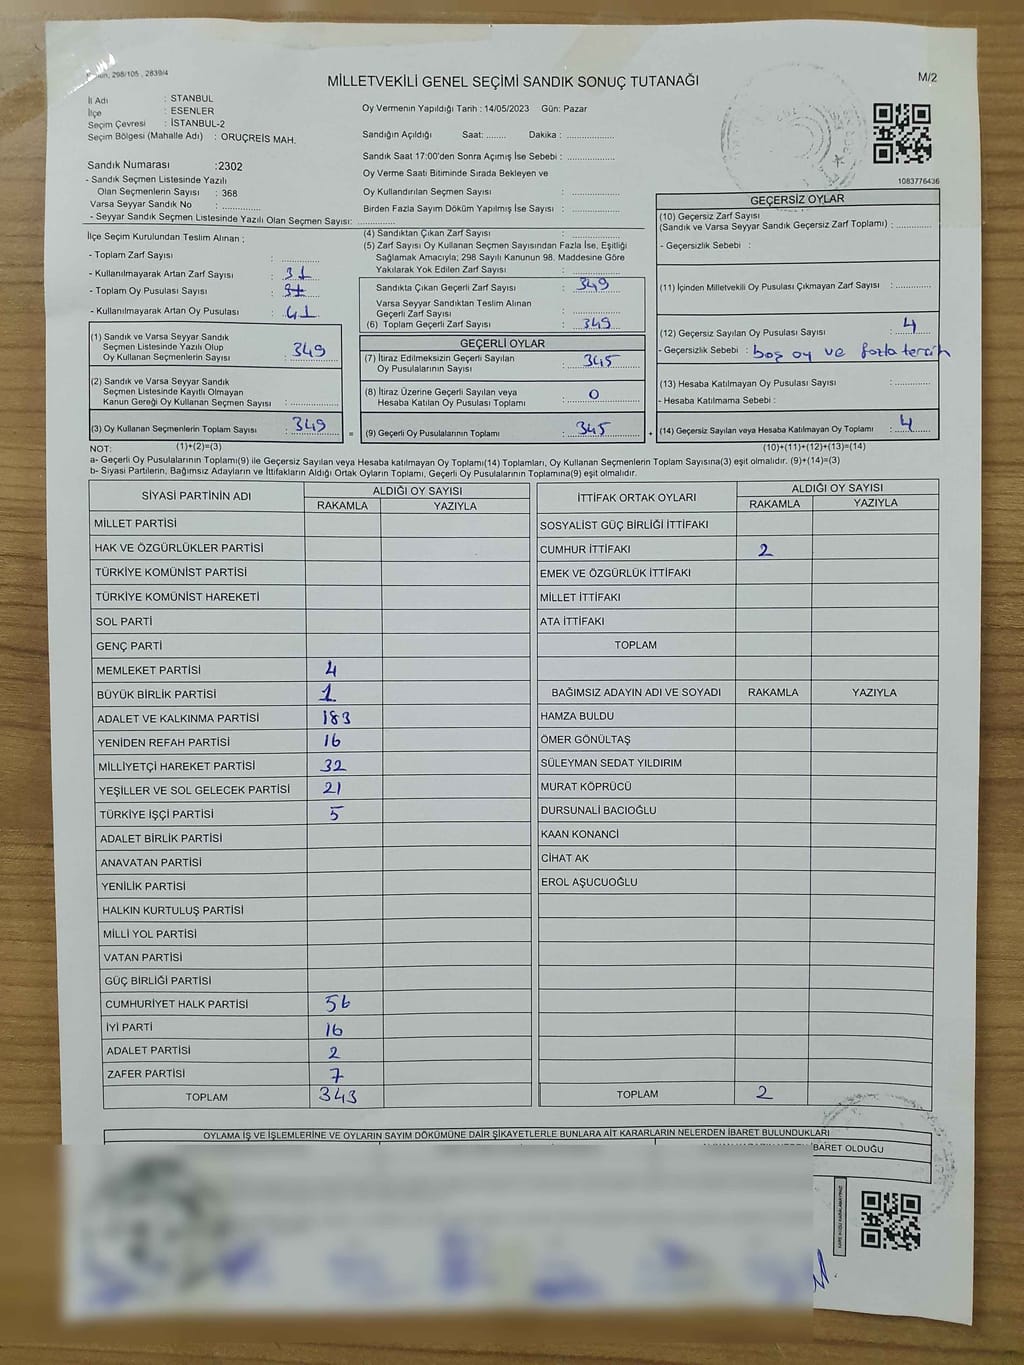 Kanun, 298/105 , 2839/4
MİLLETVEKİLİ GENEL SEÇİMİ SANDIK SONUÇ TUTANAĞI
M/2
İl Adı : STANBUL
İlçe : ESENLER
Seçim Çevresi : İSTANBUL-2
Seçim Bölgesi (Mahalle Adı) : ORUÇREİS MAH.
Sandık Numarası :2302
- Sandık Seçmen Listesinde Yazılı
Olan Seçmenlerin Sayısı : 368
Varsa Seyyar Sandık No : ..............
- Seyyar Sandık Seçmen Listesinde Yazılı Olan Seçmen Sayısı: ..............
Oy Vermenin Yapıldığı Tarih : 14/05/2023 Gün: Pazar
Sandığın Açıldığı Saat: ........ Dakika : ..............
Sandık Saat 17:00'den Sonra Açımış İse Sebebi : ..............
Oy Verme Saati Bitiminde Sırada Bekleyen ve
Oy Kullandırılan Seçmen Sayısı : ..............
Birden Fazla Sayım Döküm Yapılmış İse Sayısı : ..............
1083776436
İlçe Seçim Kurulundan Teslim Alınan ;
- Toplam Zarf Sayısı : ..............
- Kullanılmayarak Artan Zarf Sayısı : 31
- Toplam Oy Pusulası Sayısı : 31
- Kullanılmayarak Artan Oy Pusulası : 41
(1) Sandık ve Varsa Seyyar Sandık
Seçmen Listesinde Yazılı Olup
Oy Kullanan Seçmenlerin Sayısı : 349
(2) Sandık ve Varsa Seyyar Sandık
Seçmen Listesinde Kayıtlı Olmayan
Kanun Gereği Oy Kullanan Seçmen Sayısı : ..............
(3) Oy Kullanan Seçmenlerin Toplam Sayısı : 349
(4) Sandıktan Çıkan Zarf Sayısı : ..............
(5) Zarf Sayısı Oy Kullanan Seçmen Sayısından Fazla İse, Eşitliği
Sağlamak Amacıyla; 298 Sayılı Kanunun 98. Maddesine Göre
Yakılarak Yok Edilen Zarf Sayısı : ..............
Sandıkta Çıkan Geçerli Zarf Sayısı : 349
Varsa Seyyar Sandıktan Teslim Alınan
Geçerli Zarf Sayısı : ..............
(6) Toplam Geçerli Zarf Sayısı : 349
GEÇERLİ OYLAR
(7) İtiraz Edilmeksizin Geçerli Sayılan
Oy Pusulalarının Sayısı : 345
(8) İtiraz Üzerine Geçerli Sayılan veya
Hesaba Katılan Oy Pusulası Toplamı : 0
= (9) Geçerli Oy Pusulalarının Toplamı : 345 +
GEÇERSİZ OYLAR
(10) Geçersiz Zarf Sayısı
(Sandık ve Varsa Seyyar Sandık Geçersiz Zarf Toplamı) : ..............
- Geçersizlik Sebebi :
(11) İçinden Milletvekili Oy Pusulası Çıkmayan Zarf Sayısı : ..............
(12) Geçersiz Sayılan Oy Pusulası Sayısı : 4
- Geçersizlik Sebebi : boş oy ve fazla tercih
(13) Hesaba Katılmayan Oy Pusulası Sayısı : ..............
- Hesaba Katılmama Sebebi :
(14) Geçersiz Sayılan veya Hesaba Katılmayan Oy Toplamı : 4
NOT: (1)+(2)=(3)
(10)+(11)+(12)+(13)=(14)
a- Geçerli Oy Pusulalarının Toplamı(9) ile Geçersiz Sayılan veya Hesaba katılmayan Oy Toplamı(14) Toplamları, Oy Kullanan Seçmenlerin Toplam Sayısına(3) eşit olmalıdır. (9)+(14)=(3)
b- Siyasi Partilerin, Bağımsız Adayların ve İttifakların Aldığı Ortak Oyların Toplamı, Geçerli Oy Pusulalarının Toplamına(9) eşit olmalıdır.
SİYASİ PARTİNİN ADI ALDIĞI OY SAYISI
RAKAMLA YAZIYLA
MİLLET PARTİSİ
HAK VE ÖZGÜRLÜKLER PARTİSİ
TÜRKİYE KOMÜNİST PARTİSİ
TÜRKİYE KOMÜNİST HAREKETİ
SOL PARTİ
GENÇ PARTİ
MEMLEKET PARTİSİ 4
BÜYÜK BİRLİK PARTİSİ 1
ADALET VE KALKINMA PARTİSİ 183
YENİDEN REFAH PARTİSİ 16
MİLLİYETÇİ HAREKET PARTİSİ 32
YEŞİLLER VE SOL GELECEK PARTİSİ 21
TÜRKİYE İŞÇİ PARTİSİ 5
ADALET BİRLİK PARTİSİ
ANAVATAN PARTİSİ
YENİLİK PARTİSİ
HALKIN KURTULUŞ PARTİSİ
MİLLİ YOL PARTİSİ
VATAN PARTİSİ
GÜÇ BİRLİĞİ PARTİSİ
CUMHURİYET HALK PARTİSİ 56
İYİ PARTİ 16
ADALET PARTİSİ 2
ZAFER PARTİSİ 7
TOPLAM 343
İTTİFAK ORTAK OYLARI ALDIĞI OY SAYISI
RAKAMLA YAZIYLA
SOSYALİST GÜÇ BİRLİĞİ İTTİFAKI
CUMHUR İTTİFAKI 2
EMEK VE ÖZGÜRLÜK İTTİFAKI
MİLLET İTTİFAKI
ATA İTTİFAKI
TOPLAM
BAĞIMSIZ ADAYIN ADI VE SOYADI RAKAMLA YAZIYLA
HAMZA BULDU
ÖMER GÖNÜLTAŞ
SÜLEYMAN SEDAT YILDIRIM
MURAT KÖPRÜCÜ
DURSUNALİ BACIOĞLU
KAAN KONANCİ
CİHAT AK
EROL AŞUCUOĞLU
TOPLAM 2
OYLAMA İŞ VE İŞLEMLERİNE VE OYLARIN SAYIM DÖKÜMÜNE DAİR ŞİKAYETLERLE BUNLARA AİT KARARLARIN NELERDEN İBARET BULUNDUKLARI
İBARET OLDUĞU